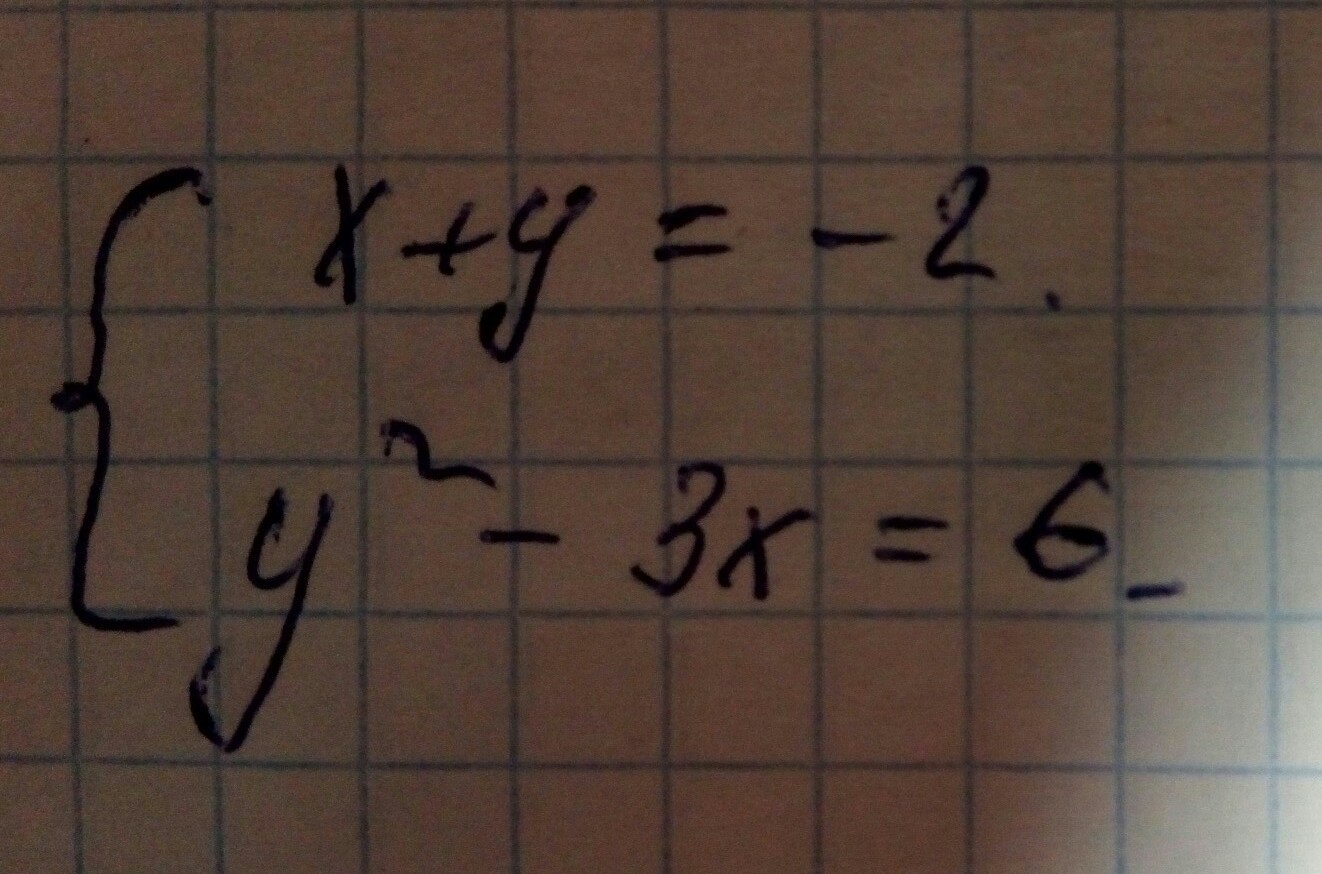 x + y = - 2.
y² - 3x = 6